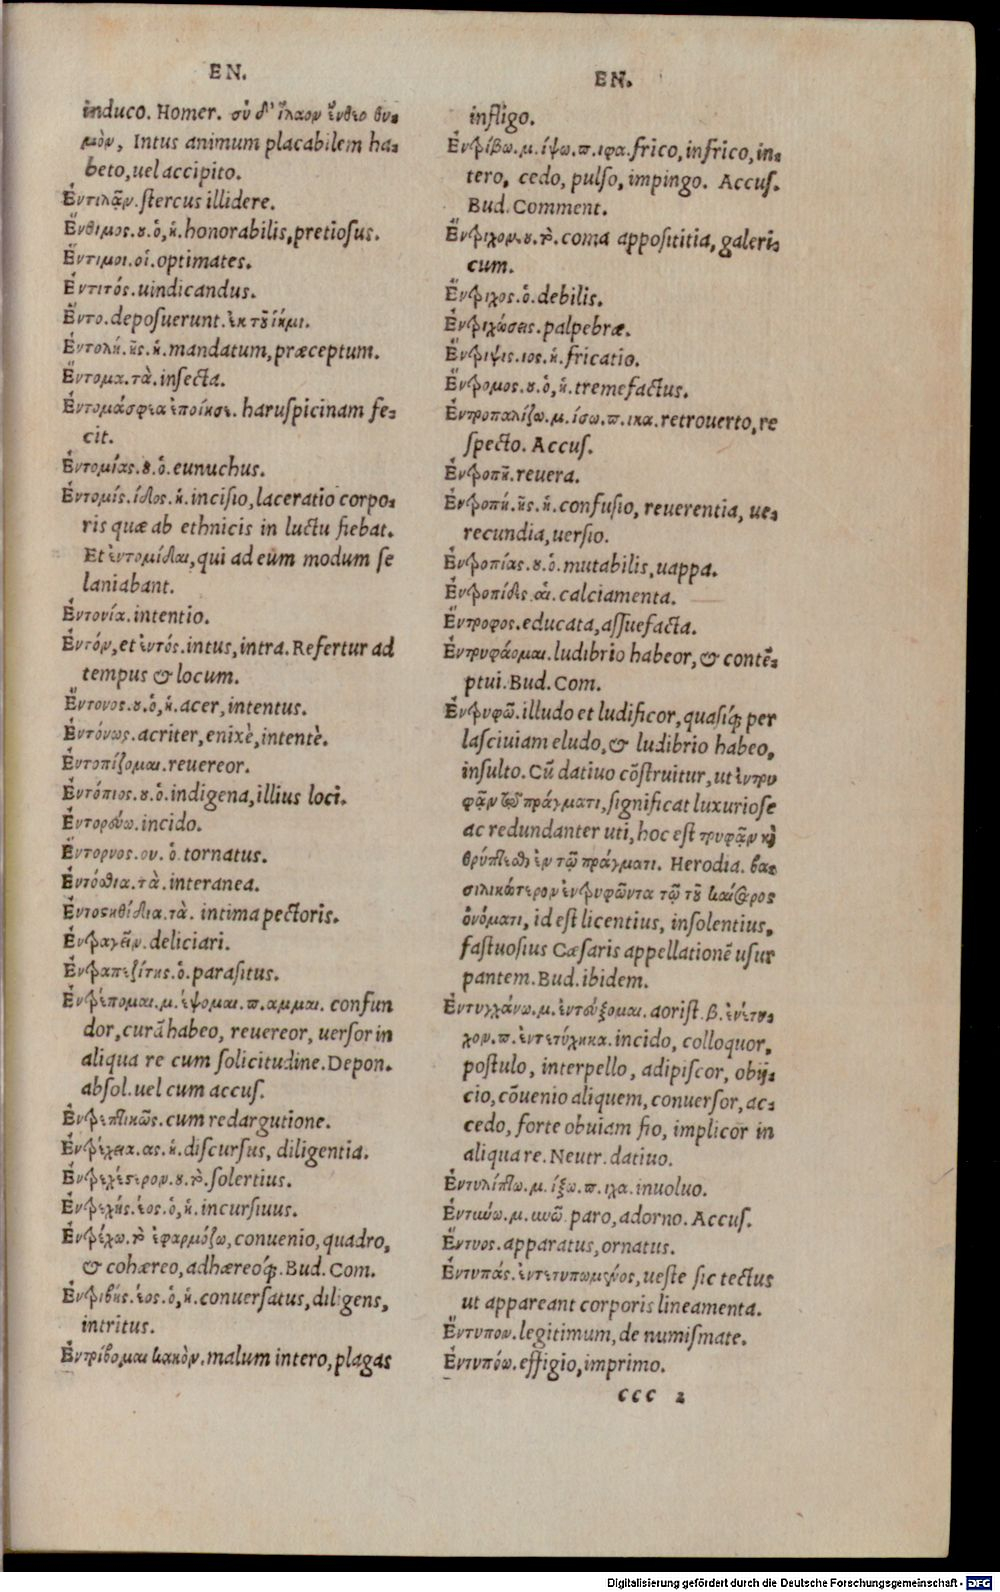 EN.
induco. Homer. σὺ δ' ἵλαον ἔνθεο θυ-
μὸν, Intus animum placabilem ha-
beto, uel accipito.
Ἐντιλᾶν. stercus illidere.
Ἔντιμος. ου. ὁ, ἡ. honorabilis, pretiosus.
Ἔντιμοι. οἱ. optimates.
Ἐντιτός. uindicandus.
Ἔντο. deposuerunt. ἐκ τοῦ ἵημι.
Ἐντολή. ῆς. ἡ. mandatum, præceptum.
Ἔντομα. τὰ. insecta.
Ἐντομάσφεια ἐποίησε. haruspicinam fe-
cit.
Ἐντομίας. ου. ὁ. eunuchus.
Ἐντομίς. ίδος. ἡ. incisio, laceratio corpo-
ris quæ ab ethnicis in luctu fiebat.
Et ἐντομίδαι, qui ad eum modum se
laniabant.
Ἐντονία. intentio.
Ἐντόν, et ἐντός. intus, intra. Refertur ad
tempus & locum.
Ἔντονος. ου. ὁ, ἡ. acer, intentus.
Ἐντόνως. acriter, enixè, intentè.
Ἐντοπίζομαι. reuereor.
Ἐντόπιος. ου. ὁ. indigena, illius loci.
Ἐντορεύω. incido.
Ἔντορνος. ου. ὁ. tornatus.
Ἐντόσθια. τὰ. interanea.
Ἐντοσκθίδια. τὰ. intima pectoris.
Ἐντραγεῖν. deliciari.
Ἐντραπεζίτης. ὁ. parasitus.
Ἐντρέπομαι. μ. έψομαι. π. αμμαι. confun
dor, curã habeo, reuereor, uersor in
aliqua re cum solicitudine. Depon.
absol. uel cum accus.
Ἐντρεπτικῶς. cum redargutione.
Ἐντρέχεια. ας. ἡ. discursus, diligentia.
Ἐντρεχέστερον. ου. τὸ. solertius.
Ἐντρεχής. έος. ὁ, ἡ. incursiuus.
Ἐντρέχω. τὸ ἐφαρμόζω, conuenio, quadro,
& cohæreo, adhæreoq́;. Bud. Com.
Ἐντριβής. έος. ὁ, ἡ. conuersatus, diligens,
intritus.
Ἐντρίβομαι κακὸν. malum intero, plagas
EN.
infligo.
Ἐντρίβω. μ. ίψω. π. ιφα. frico, infrico, in-
tero, cedo, pulso, impingo. Accus.
Bud. Comment.
Ἔντριχον. ου. τὸ. coma apposititia, galeri-
cum.
Ἔντριχος. ὁ. debilis.
Ἐντριχώσεις. palpebræ.
Ἔντριψις. ιος. ἡ. fricatio.
Ἔντρομος. ου. ὁ, ἡ. tremefactus.
Ἐντροπαλίζω. μ. ίσω. π. ικα. retrouerto, re
specto. Accus.
Ἐντροπῇ. reuera.
Ἐντροπή. ῆς. ἡ. confusio, reuerentia, ue-
recundia, uersio.
Ἐντροπίας. ου. ὁ. mutabilis, uappa.
Ἐντροπίδες. αἱ. calciamenta.
Ἔντροφος. educata, assuefacta.
Ἐντρυφάομαι. ludibrio habeor, & contẽ-
ptui. Bud. Com.
Ἐντρυφῶ. illudo et ludificor, quasiq́; per
lasciuiam eludo, & ludibrio habeo,
insulto. Cũ datiuo cõstruitur, ut ἐντρυ
φᾶν τῷ πράγματι, significat luxuriose
ac redundanter uti, hoc est τρυφᾶν καὶ
θρύπτεσθαι ἐν τῷ πράγματι. Herodia. βα-
σιλικώτερον ἐντρυφῶντα τῷ τοῦ καίσαρος
ὀνόματι, id est licentius, insolentius,
fastuosius Cæsaris appellationẽ usur
pantem. Bud. ibidem.
Ἐντυγχάνω. μ. ἐντεύξομαι. aorist. β. ἐνέτυ-
χον. π. ἐντετύχηκα. incido, colloquor,
postulo, interpello, adipiscor, obij-
cio, cõuenio aliquem, conuersor, ac-
cedo, forte obuiam fio, implicor in
aliqua re. Neutr. datiuo.
Ἐντυλίττω. μ. ίξω. π. ιχα. inuoluo.
Ἐντύνω. μ. υνῶ. paro, adorno. Accus.
Ἔντυος. apparatus, ornatus.
Ἐντυπάς. ἐντετυπωμένος, ueste sic tectus
ut appareant corporis lineamenta.
Ἔντυπον. legitimum, de numismate.
Ἐντυπόω. effigio, imprimo.
CCC 2
Digitalisierung gefördert durch die Deutsche Forschungsgemeinschaft - DFG